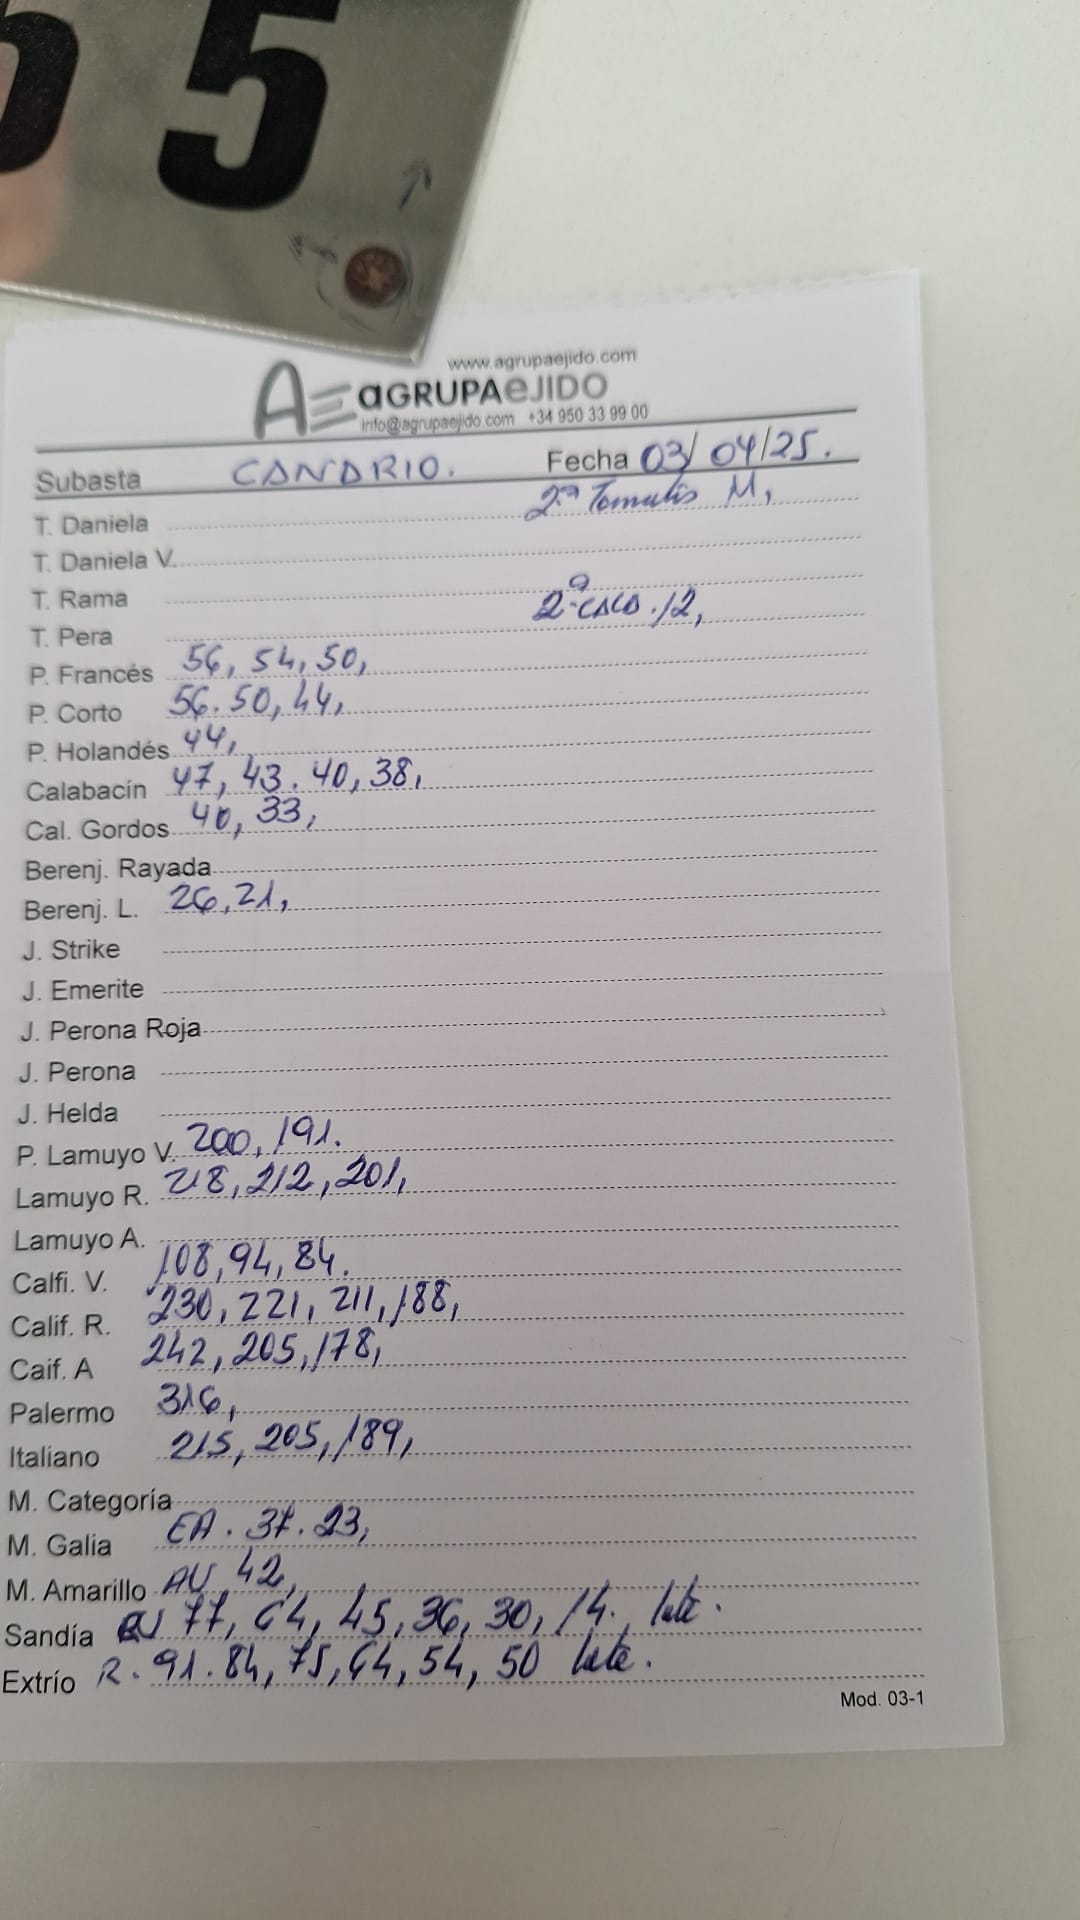 5 5
www.agrupaejido.com
AE aGRUPAeJIDO
info@agrupaejido.com +34 950 33 99 00
Subasta CANDRIO. Fecha 03/04/25.
T. Daniela 2ª Tomatis M,
T. Daniela V.
T. Rama
T. Pera 2ª CALA. 12,
P. Francés 56, 54, 50,
P. Corto 56. 50, 44,
P. Holandés 44,
Calabacín 47, 43. 40, 38,
Cal. Gordos 40, 33,
Berenj. Rayada
Berenj. L. 26, 21,
J. Strike
J. Emerite
J. Perona Roja
J. Perona
J. Helda
P. Lamuyo V. 200, 191.
Lamuyo R. 218, 212, 201,
Lamuyo A.
Calfi. V. 108, 94, 84.
Calif. R. 230, 221, 211, 188,
Caif. A 242, 205, 178,
Palermo 316,
Italiano 215, 205, 189,
M. Categoría
M. Galia EA. 37. 23,
M. Amarillo AU 42,
Sandía 77, 64, 45, 36, 30, 14.
Extrío R. 91. 84, 75, 64, 54, 50
Mod. 03-1